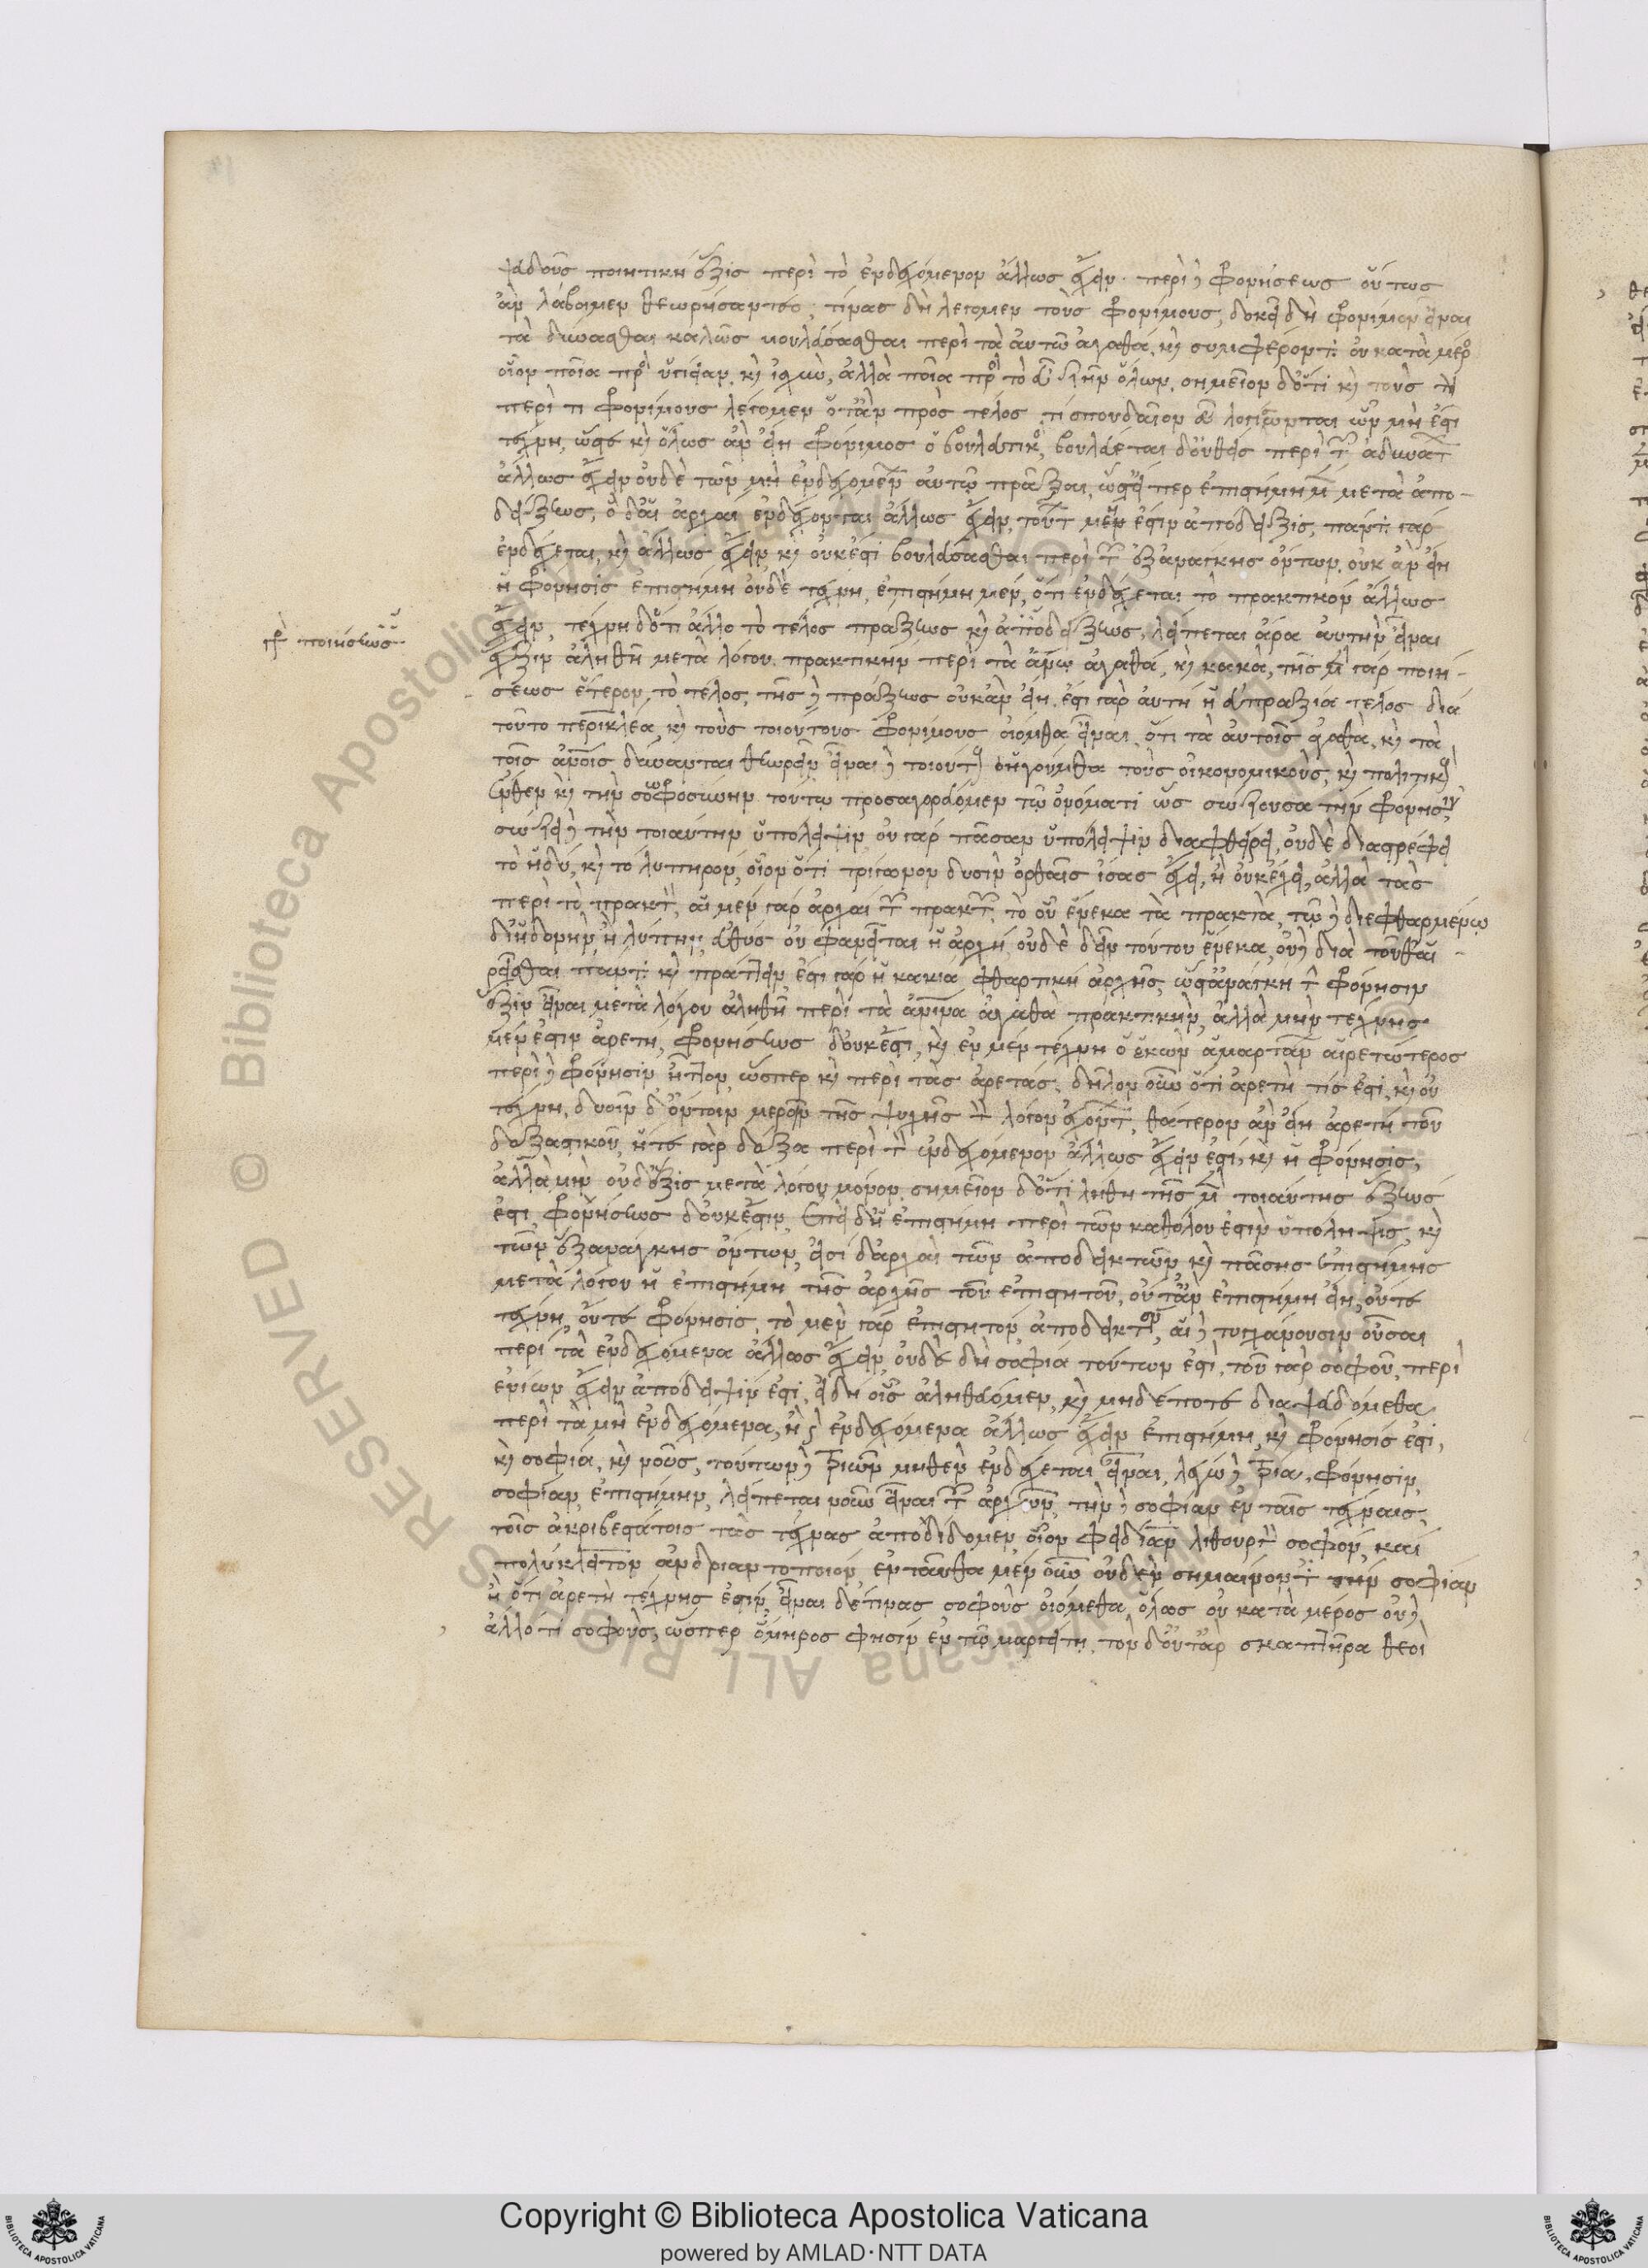 ψευδοῦς ποιητικὴ ἕξις περὶ τὸ ἐνδεχόμενον ἄλλως ἔχειν. περὶ δὲ φρονήσεως οὕτως
ἂν λάβοιμεν θεωρήσαντες, τίνας δὴ λέγομεν τοὺς φρονίμους, δοκεῖ δὴ φρονίμου εἶναι
τὸ δύνασθαι καλῶς βουλεύσασθαι περὶ τὰ αὑτῷ ἀγαθὰ καὶ συμφέροντα οὐ κατὰ μέρος
οἷον ποῖα πρὸς ὑγίειαν καὶ ἰσχὺν, ἀλλὰ ποῖα πρὸς τὸ εὖ ζῆν ὅλως. σημεῖον δ' ὅτι καὶ τοὺς
περί τι φρονίμους λέγομεν ὅταν πρὸς τέλος τι σπουδαῖον εὖ λογίσωνται ὧν μή ἐστι
τέχνη, ὥστε καὶ ὅλως ἂν εἴη φρόνιμος ὁ βουλευτικός, βουλεύεται δ' οὐθεὶς περὶ τῶν ἀδυνάτων
ἄλλως ἔχειν οὐδὲ τῶν μὴ ἐνδεχομένων αὐτῷ πρᾶξαι, ὥστ' εἴπερ ἐπιστήμη μὲν μετὰ ἀπο-
δείξεως, ὧν δ' αἱ ἀρχαὶ ἐνδέχονται ἄλλως ἔχειν, τούτων μή ἐστιν ἀπόδειξις, πάντα γὰρ
ἐνδέχεται καὶ ἄλλως ἔχειν, καὶ οὐκ ἔστι βουλεύσασθαι περὶ τῶν ἐξ ἀνάγκης ὄντων. οὐκ ἂν εἴη
ἡ φρόνησις ἐπιστήμη οὐδὲ τέχνη, ἐπιστήμη μέν, ὅτι ἐνδέχεται τὸ πρακτικὸν ἄλλως
γρ. ποιήσεως
ἔχειν, τέχνη δ' ὅτι ἄλλο τὸ τέλος πράξεως καὶ ἀποδείξεως, λείπεται ἄρα αὐτὴν εἶναι
ἕξιν ἀληθῆ μετὰ λόγου πρακτικὴν περὶ τὰ ἀνθρώπῳ ἀγαθὰ, καὶ κακὰ, τῆς μὲν γὰρ ποιή-
σεως ἕτερον, τὸ τέλος, τῆς δὲ πράξεως οὐκ ἂν εἴη. ἔστι γὰρ αὐτὴ ἡ εὐπραξία τέλος διὰ
τοῦτο περικλέα, καὶ τοὺς τοιούτους φρονίμους οἰόμεθα εἶναι, ὅτι τὰ αὑτοῖς ἀγαθὰ, καὶ τὰ
τοῖς ἀνθρώποις δύνανται θεωρεῖν εἶναι δὲ τοιούτους ἡγούμεθα τοὺς οἰκονομικοὺς, καὶ πολιτικούς
ἔνθεν καὶ τὴν σωφροσύνην τούτῳ προσαγορεύομεν τῷ ὀνόματι ὡς σώζουσα τὴν φρόνησιν,
σώζει δὲ τὴν τοιαύτην ὑπόληψιν, οὐ γὰρ πᾶσαν ὑπόληψιν διαφθείρει, οὐδὲ διαστρέφει
τὸ ἡδύ, καὶ τὸ λυπηρόν, οἷον ὅτι τρίγωνον δυσὶν ὀρθαῖς ἴσας ἔχει, ἢ οὐκ ἔχει, ἀλλὰ τὰς
περὶ τὸ πρακτόν, αἱ μὲν γὰρ ἀρχαὶ τῶν πρακτῶν, τὸ οὗ ἕνεκα τὰ πρακτὰ, τῷ δὲ διεφθαρμένῳ
δι' ἡδονὴν ἢ λύπην, εὐθὺς οὐ φανεῖται ἡ ἀρχή, οὐδὲ δεῖν τούτου ἕνεκα, οὐδὲ διὰ τοῦθ' αἱ-
ρεῖσθαι πάντα καὶ πράττειν, ἔστι γὰρ ἡ κακία φθαρτικὴ ἀρχῆς, ὥστ' ἀνάγκη τὴν φρόνησιν
ἕξιν εἶναι μετὰ λόγου ἀληθῆ περὶ τὰ ἀνθρώπινα ἀγαθὰ πρακτικήν, ἀλλὰ μὴν τέχνης
μέν ἐστιν ἀρετή, φρονήσεως δ' οὐκ ἔστι, καὶ ἐν μὲν τέχνῃ ὁ ἑκὼν ἁμαρτάνων αἱρετώτερος
περὶ δὲ φρόνησιν ἧττον, ὥσπερ καὶ περὶ τὰς ἀρετάς. δῆλον οὖν ὅτι ἀρετή τίς ἐστι, καὶ οὐ
τέχνη, δυοῖν δ' ὄντοιν μεροῖν τῆς ψυχῆς τῶν λόγον ἐχόντων, θάτερον ἂν εἴη ἀρετὴ τοῦ
δοξαστικοῦ, ἥ τε γὰρ δόξα περὶ τὸ ἐνδεχόμενον ἄλλως ἔχειν ἐστὶ, καὶ ἡ φρόνησις,
ἀλλὰ μὴν οὐδ' ἕξις μετὰ λόγου μόνον, σημεῖον δ' ὅτι λήθη τῆς μὲν τοιαύτης ἕξεως
ἔστι φρονήσεως δ' οὐκ ἔστιν. ἐπεὶ δ' ἡ ἐπιστήμη περὶ τῶν καθόλου ἐστὶν ὑπόληψις, καὶ
τῶν ἐξ ἀνάγκης ὄντων, εἰσὶ δ' ἀρχαὶ τῶν ἀποδεικτῶν, καὶ πάσης ἐπιστήμης
μετὰ λόγου ἡ ἐπιστήμη τῆς ἀρχῆς τοῦ ἐπιστητοῦ, οὔτ' ἂν ἐπιστήμη εἴη, οὔτε
τέχνη, οὔτε φρόνησις, τὸ μὲν γὰρ ἐπιστητὸν, ἀποδεικτόν, αἱ δὲ τυγχάνουσιν οὖσαι
περὶ τὰ ἐνδεχόμενα ἄλλως ἔχειν, οὐδὲ δὴ σοφία τούτων ἐστὶ, τοῦ γὰρ σοφοῦ, περὶ
ἐνίων ἔχειν ἀπόδειξιν ἐστι, εἰ δὴ οἷς ἀληθεύομεν, καὶ μηδέποτε διαψευδόμεθα
περὶ τὰ μὴ ἐνδεχόμενα, ἢ καὶ ἐνδεχόμενα ἄλλως ἔχειν ἐπιστήμη, καὶ φρόνησίς ἐστι,
καὶ σοφία, καὶ νοῦς, τούτων δὲ τριῶν μηθὲν ἐνδέχεται εἶναι, λέγω δὲ τρία, φρόνησιν,
σοφίαν, ἐπιστήμην, λείπεται νοῦν εἶναι τῶν ἀρχῶν, τὴν δὲ σοφίαν ἐν ταῖς τέχναις
τοῖς ἀκριβεστάτοις τὰς τέχνας ἀποδίδομεν, οἷον φειδίαν λιθουργὸν σοφόν, καὶ
πολύκλειτον ἀνδριαντοποιόν, ἐνταῦθα μὲν οὖν οὐδὲν σημαίνοντες τὴν σοφίαν
ἢ ὅτι ἀρετὴ τέχνης ἐστίν, εἶναι δέ τινας σοφοὺς οἰόμεθα, ὅλως οὐ κατὰ μέρος οὐδ'
ἄλλό τι σοφοὺς, ὥσπερ ὅμηρος φησὶν ἐν τῷ μαργείτῃ, τὸν δ' οὔτ' ἂρ σκαπτῆρα θεοὶ
Copyright © Biblioteca Apostolica Vaticana
powered by AMLAD·NTT DATA